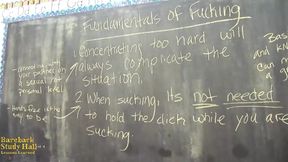 Fundamentals of Fucking
1. Concentrating too hard will
always complicate the
situation.
2 When sucking, Its not needed
to hold the dick while you are
sucking.
connecting with
your partner on
a sexual not
personal level
hands free is the
way to be
Bas
and kn
can m
a gr
Bareback
Study Hall
Lessons Learned